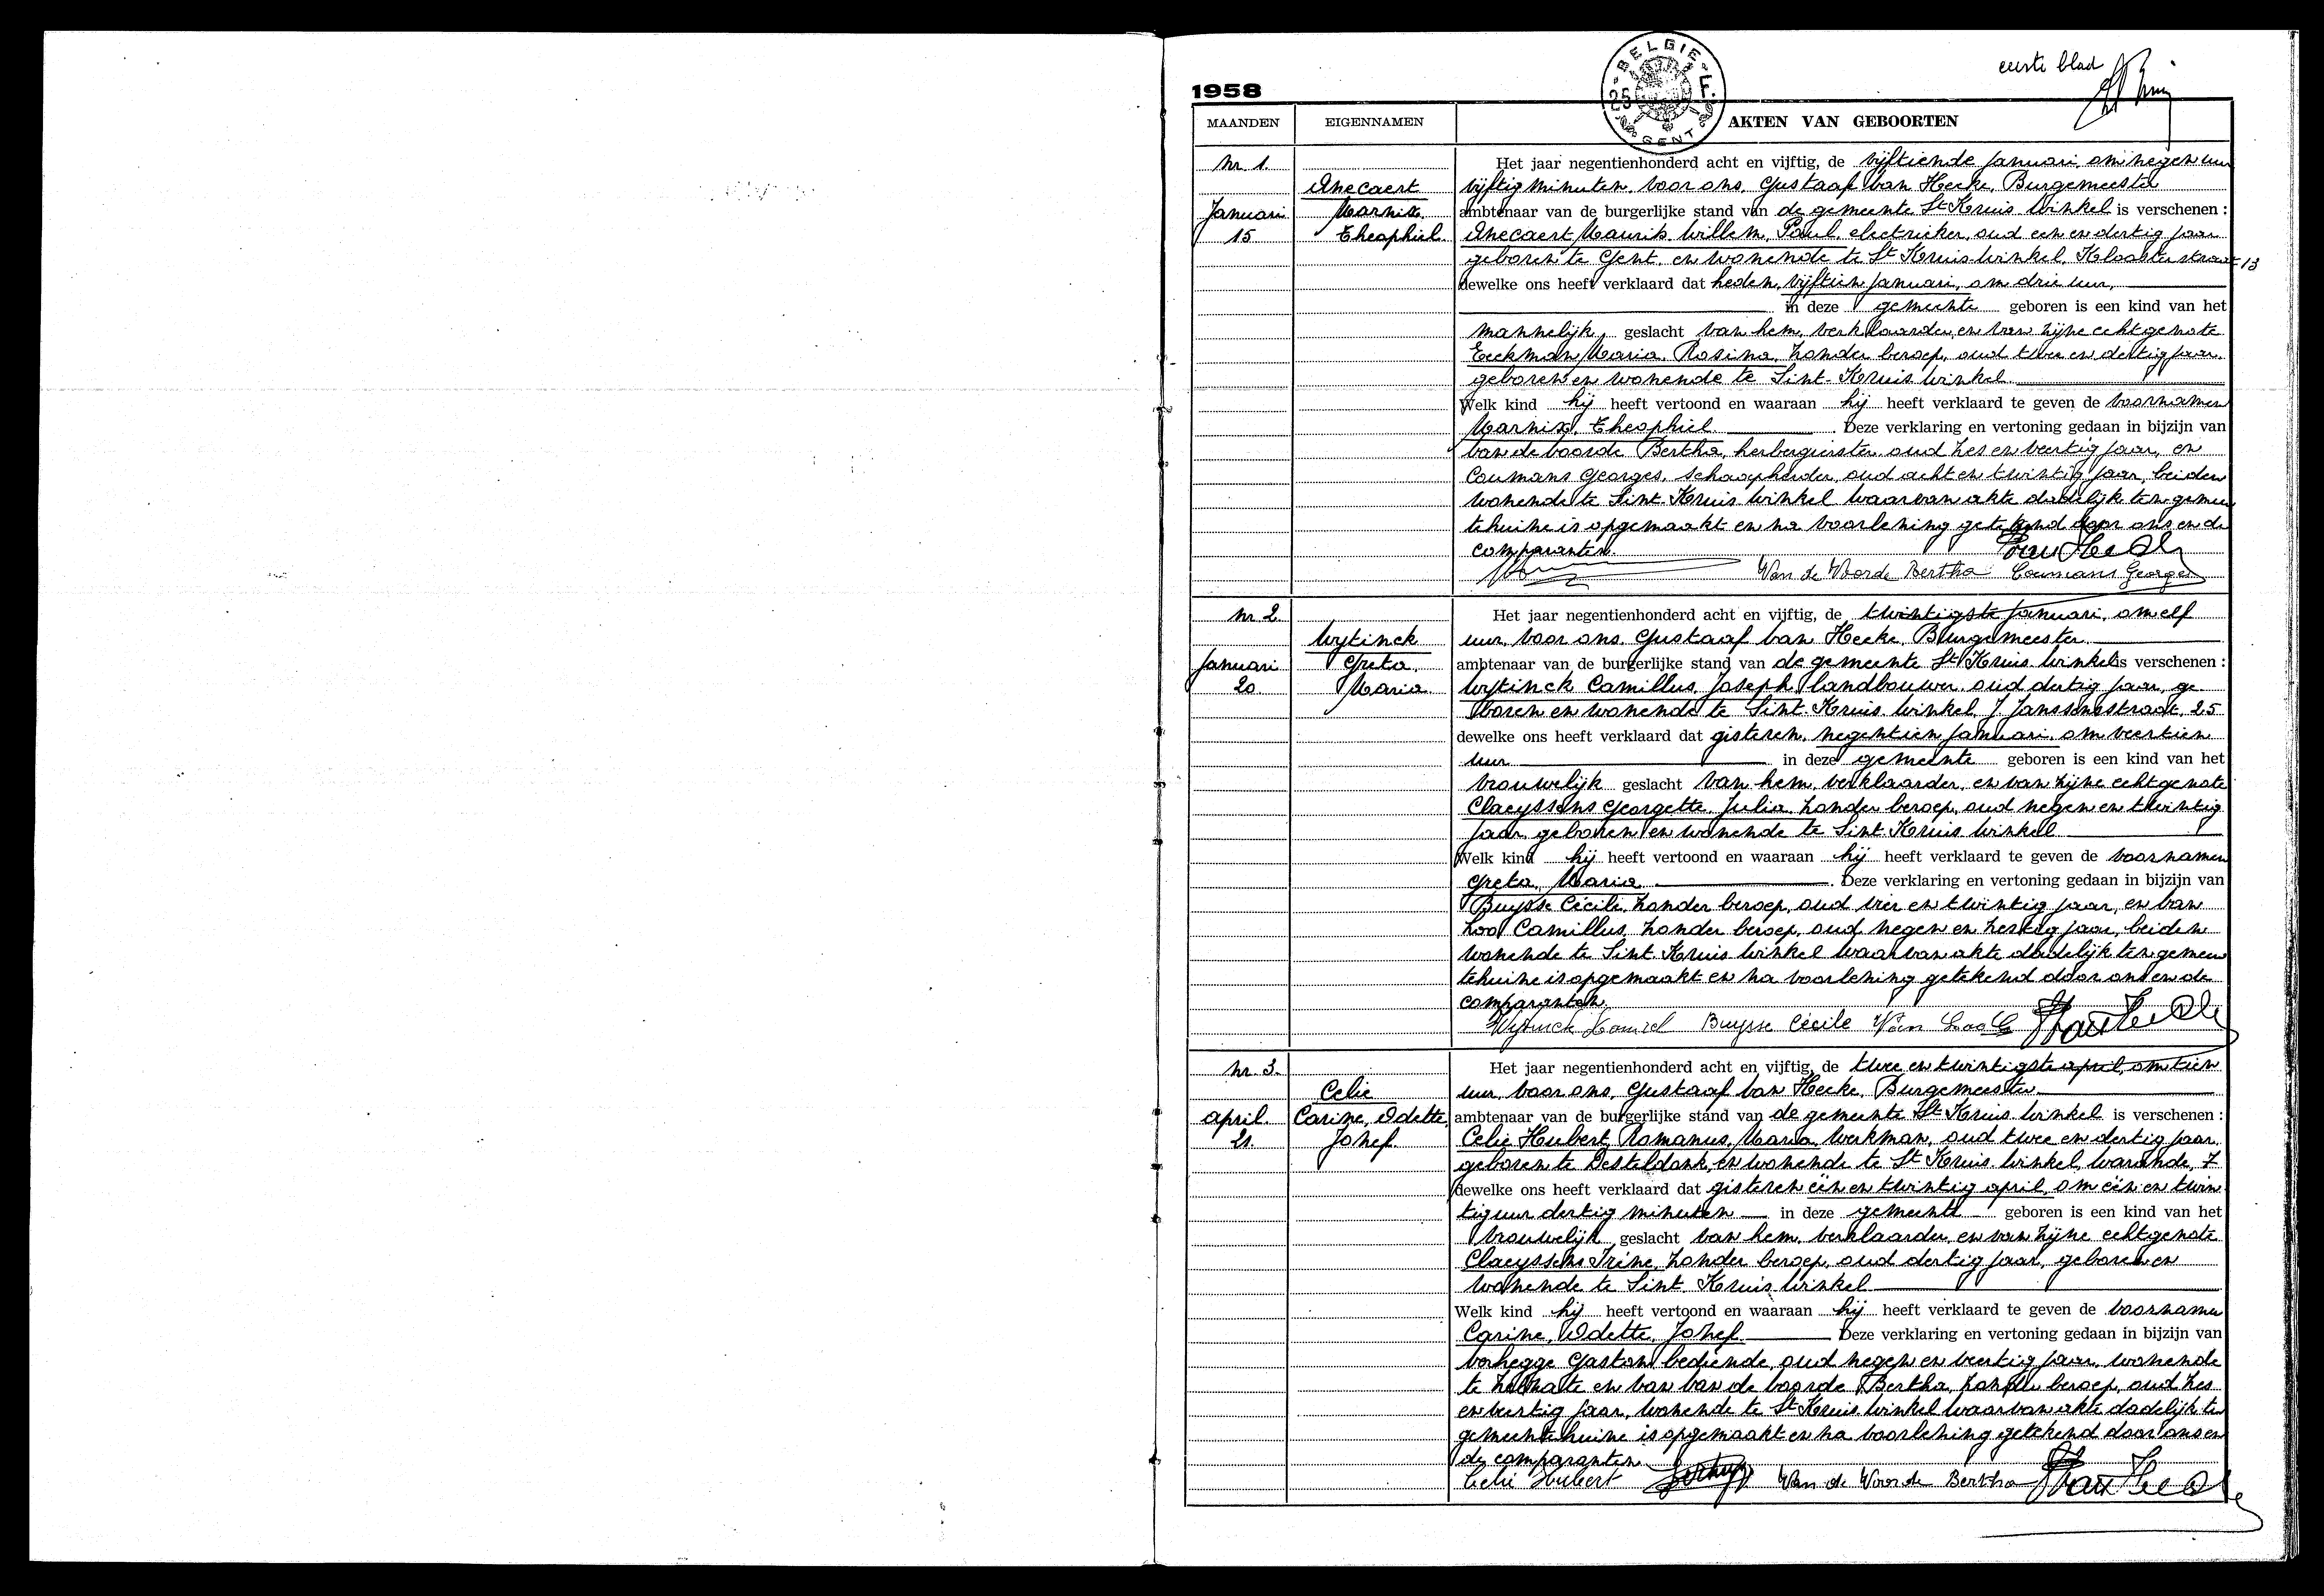 eerste blad
1958
BELGIE
25 F.
GENT
MAANDEN EIGENNAMEN AKTEN VAN GEBOORTEN
nr 1. Het jaar negentienhonderd acht en vijftig, de vijftiende Januari, om negen uur
Onecaert vijftig minuten, voor ons, Gustaaf Van Hecke, Burgemeester
Januari Marnix ambtenaar van de burgerlijke stand van de gemeente St Kruis Winkel is verschenen :
15 Theophiel. Onecaert Maurits, Willem, Paul, electrieker, oud een en dertig jaar
geboren te Gent, en wonende te St Kruis Winkel, Kloosterstraat 13
dewelke ons heeft verklaard dat heden, vijftien januari, om drie uur,
in deze gemeente geboren is een kind van het
mannelijk geslacht van hem, verklaarder, en van zijne echtgenote
Eeckman, Maria, Rosina, zonder beroep, oud twee en dertig jaar,
geboren en wonende te Sint-Kruis Winkel
Welk kind hij heeft vertoond en waaraan hij heeft verklaard te geven de voornamen
Marnix, Theophiel. Deze verklaring en vertoning gedaan in bijzijn van
Van de Voorde Bertha, herbergierster, oud zes en veertig jaar, en
Coumans Georges, schaapherder, oud acht en twintig jaar, beiden
wonende te Sint-Kruis Winkel waarvan akte dadelijk ten gemeen
tehuize is opgemaakt en na voorlezing getekend door ons en de
comparanten.
Van de Voorde Bertha Coumans Georges
nr 2. Het jaar negentienhonderd acht en vijftig, de twintigste Januari, om elf
Wytinck uur, voor ons, Gustaaf Van Hecke, Burgemeester
Januari Greta, ambtenaar van de burgerlijke stand van de gemeente St Kruis Winkel is verschenen :
20 Maria Wytinck Camillus, Joseph, landbouwer, oud dertig jaar, ge
boren en wonende te Sint-Kruis Winkel, J. Janssensstraat, 25
dewelke ons heeft verklaard dat gisteren, negentien januari, om veertien
uur in deze gemeente geboren is een kind van het
vrouwelijk geslacht van hem, verklaarder, en van zijne echtgenote
Claeyssens Georgette, Julia, zonder beroep, oud negen en twintig
jaar, geboren en wonende te Sint-Kruis Winkel
Welk kind hij heeft vertoond en waaraan hij heeft verklaard te geven de voornamen
Greta, Maria. Deze verklaring en vertoning gedaan in bijzijn van
Buysse Cécile, zonder beroep, oud vier en twintig jaar, en Van
Loo Camillus, zonder beroep, oud negen en zestig jaar, beiden
wonende te Sint-Kruis Winkel waarvan akte dadelijk ten gemeen
tehuize is opgemaakt en na voorlezing getekend door ons en de
comparanten.
Wytinck Kamiel Buysse Cécile Van Loo C
nr 3. Het jaar negentienhonderd acht en vijftig, de twee en twintigste april, om tien
Celie uur, voor ons, Gustaaf Van Hecke, Burgemeester
april. Carine, Odette, ambtenaar van de burgerlijke stand van de gemeente St Kruis Winkel is verschenen :
21. Jozef. Celie Hubert, Romanus, Maria, werkman, oud twee en dertig jaar,
geboren te Desteldonk, en wonende te St Kruis Winkel, Warande, 7
dewelke ons heeft verklaard dat gisteren één en twintig april, om één en twin
tig uur dertig minuten in deze gemeente geboren is een kind van het
vrouwelijk geslacht van hem, verklaarder, en van zijne echtgenote
Claeyssens Irène, zonder beroep, oud dertig jaar, geboren en
wonende te Sint-Kruis Winkel
Welk kind hij heeft vertoond en waaraan hij heeft verklaard te geven de voornamen
Carine, Odette, Jozef. Deze verklaring en vertoning gedaan in bijzijn van
Verhegge Gaston, bediende, oud negen en veertig jaar, wonende
te Zelzate en van Van de Voorde Bertha, zonder beroep, oud zes
en veertig jaar, wonende te St Kruis Winkel waarvan akte dadelijk te
gemeentehuize is opgemaakt en na voorlezing getekend door ons en
de comparanten.
Celie Hubert Van de Voorde Bertha